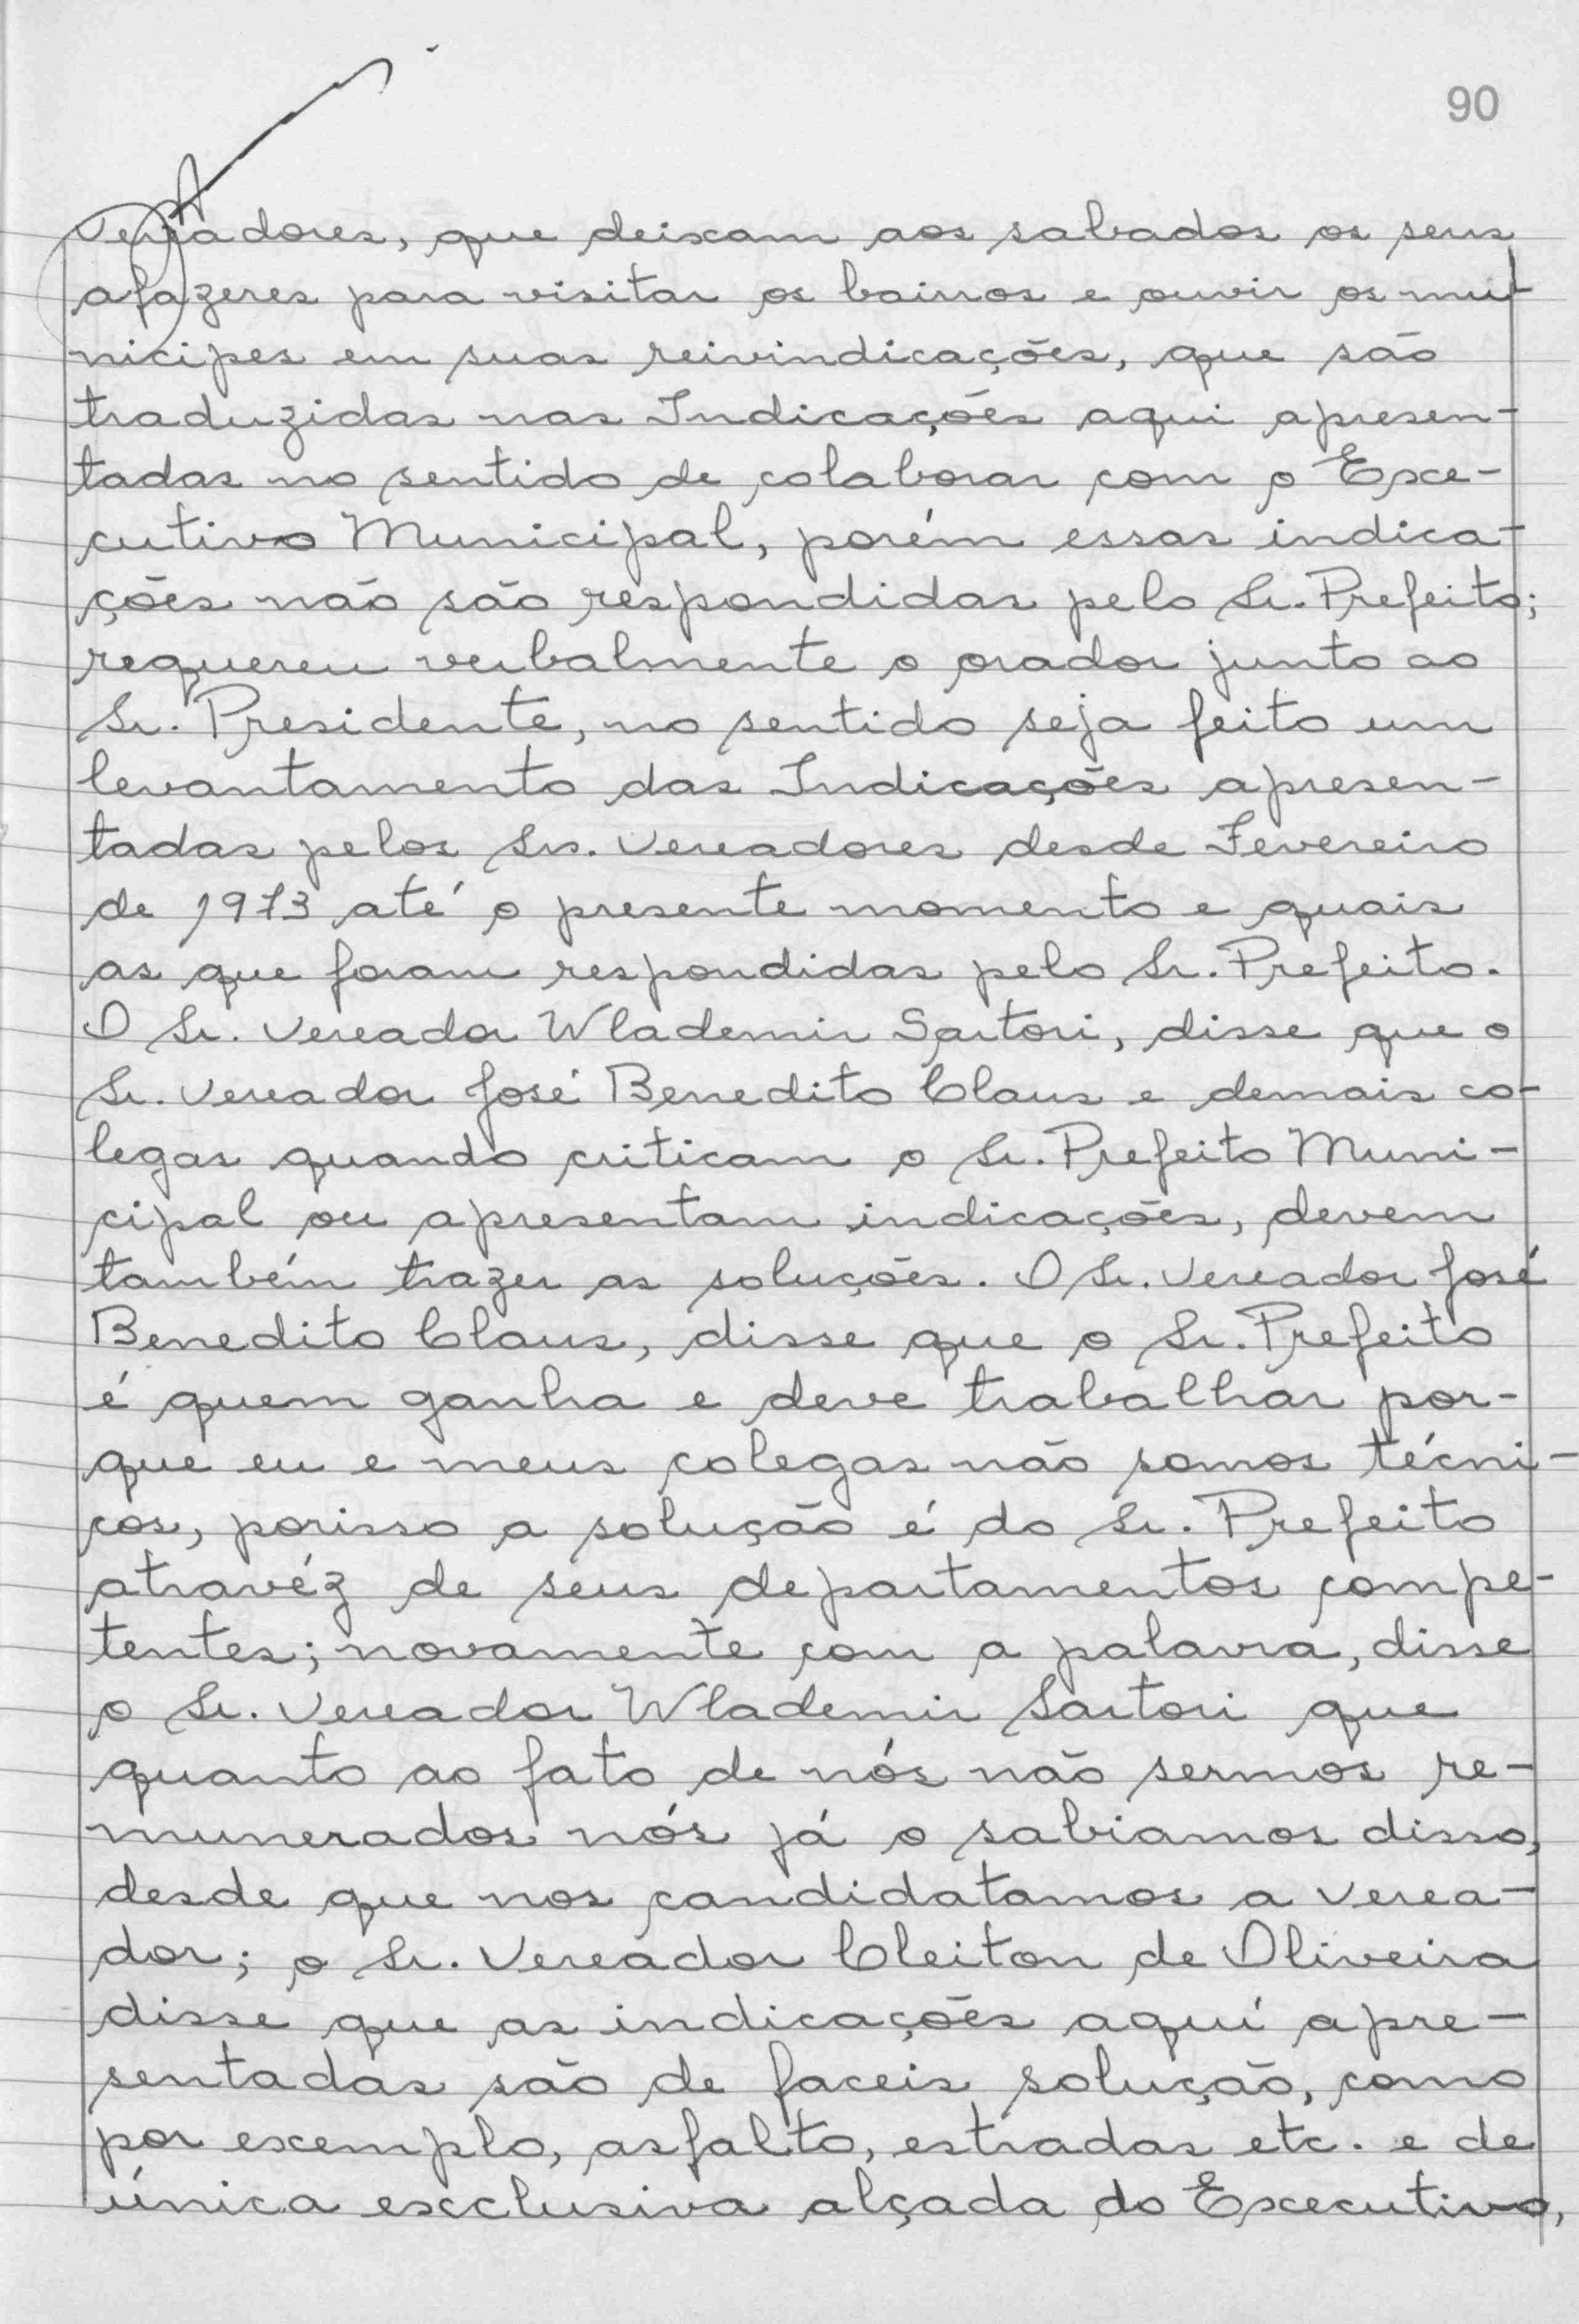 90
Vereadores, que deixam aos sabados os seus
afazeres para visitar os bairros e ouvir os mu-
nicipes em suas reivindicações, que são
traduzidas nas Indicações aqui apresen-
tadas no sentido de colaborar com o Exe-
cutivo Municipal, porém essas indica-
ções não são respondidas pelo Sr. Prefeito;
requereu verbalmente o orador junto ao
Sr. Presidente, no sentido seja feito um
levantamento das Indicações apresen-
tadas pelos Srs. Vereadores desde Fevereiro
de 1973 até o presente momento e quais
as que foram respondidas pelo Sr. Prefeito.
O Sr. Vereador Wlademir Sartori, disse que o
Sr. Vereador José Benedito Claus e demais co-
legas quando criticam o Sr. Prefeito Muni-
cipal ou apresentam indicações, devem
também trazer as soluções. O Sr. Vereador José
Benedito Claus, disse que o Sr. Prefeito
é quem ganha e deve trabalhar por-
que eu e meus colegas não somos técni-
cos, porisso a solução é do Sr. Prefeito
atravéz de seus departamentos compe-
tentes; novamente com a palavra, disse
o Sr. Vereador Wlademir Sartori que
quanto ao fato de nós não sermos re-
munerados nós já o sabiamos disso,
desde que nos candidatamos a verea-
dor; o Sr. Vereador Cleiton de Oliveira
disse que as indicações aquí apre-
sentadas são de faceis solução, como
por exemplo, asfalto, estradas etc. e de
única exclusiva alçada do Executivo,